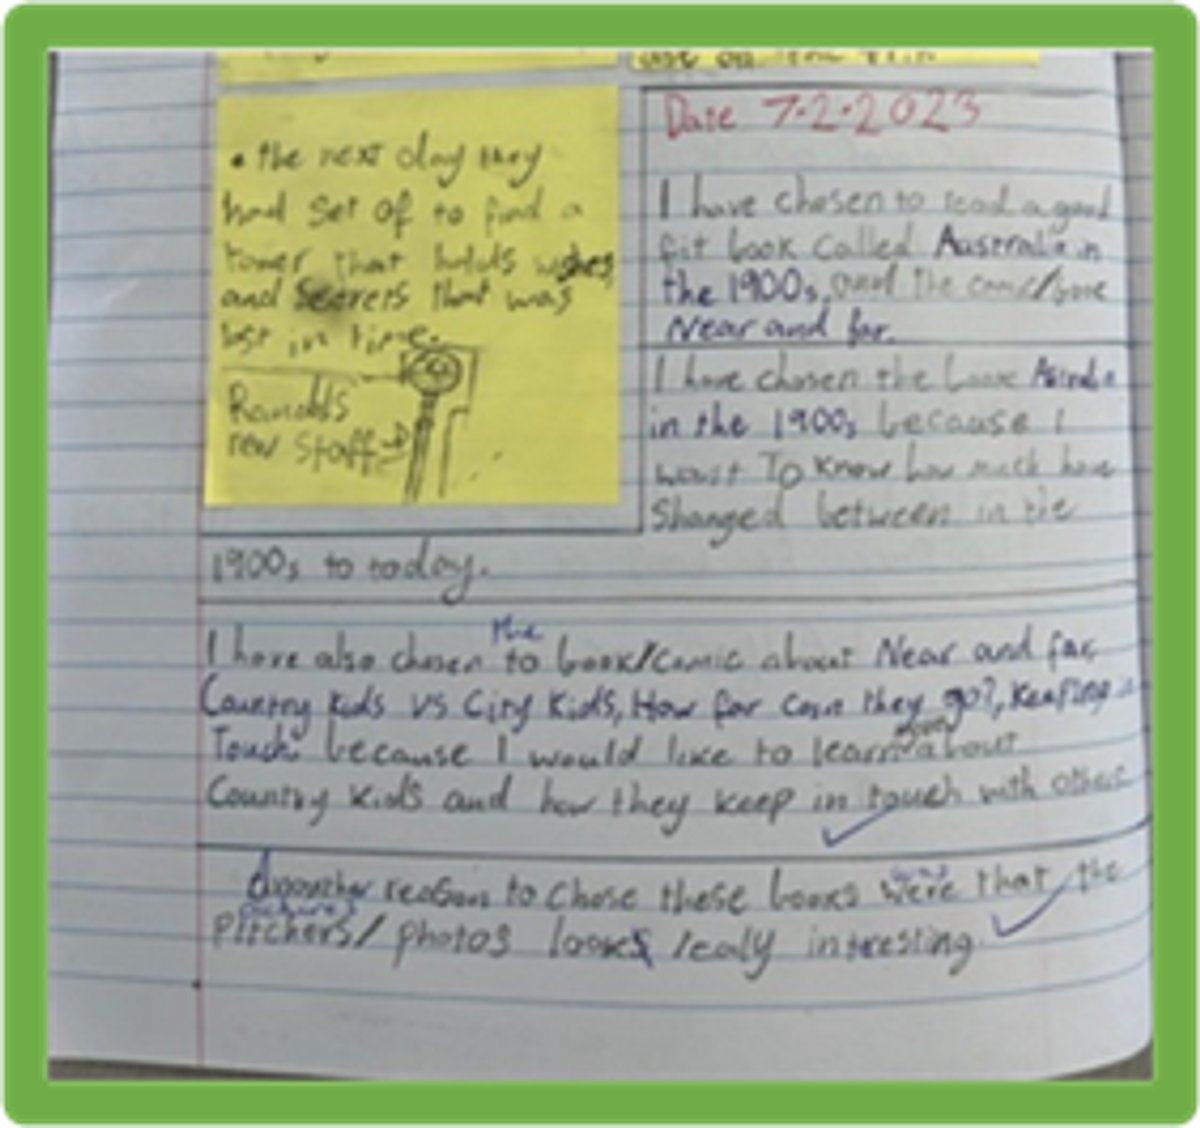 use on the
• the next day they
had set of to find a
tower that holds wishes,
and secrets that was
lost in time.
new staff
Date 7.2.2023
I have chosen to read a good
fit book called Australia in
the 1900s, and the comic/book
Near and far.
I have chosen the book
in the 1900s because I
want To know how much have
Shanged between in the
1900s to today.
the
I have also chosen to book/comic about Near and far,
Country kids vs City Kids, How far can they go?, Keeping in
Touch. because I would like to learn about
Country kids and how they keep in touch with others
Anoother reason to chose these books were that the
pictures
Pitchers/ photos looks realy intresting.